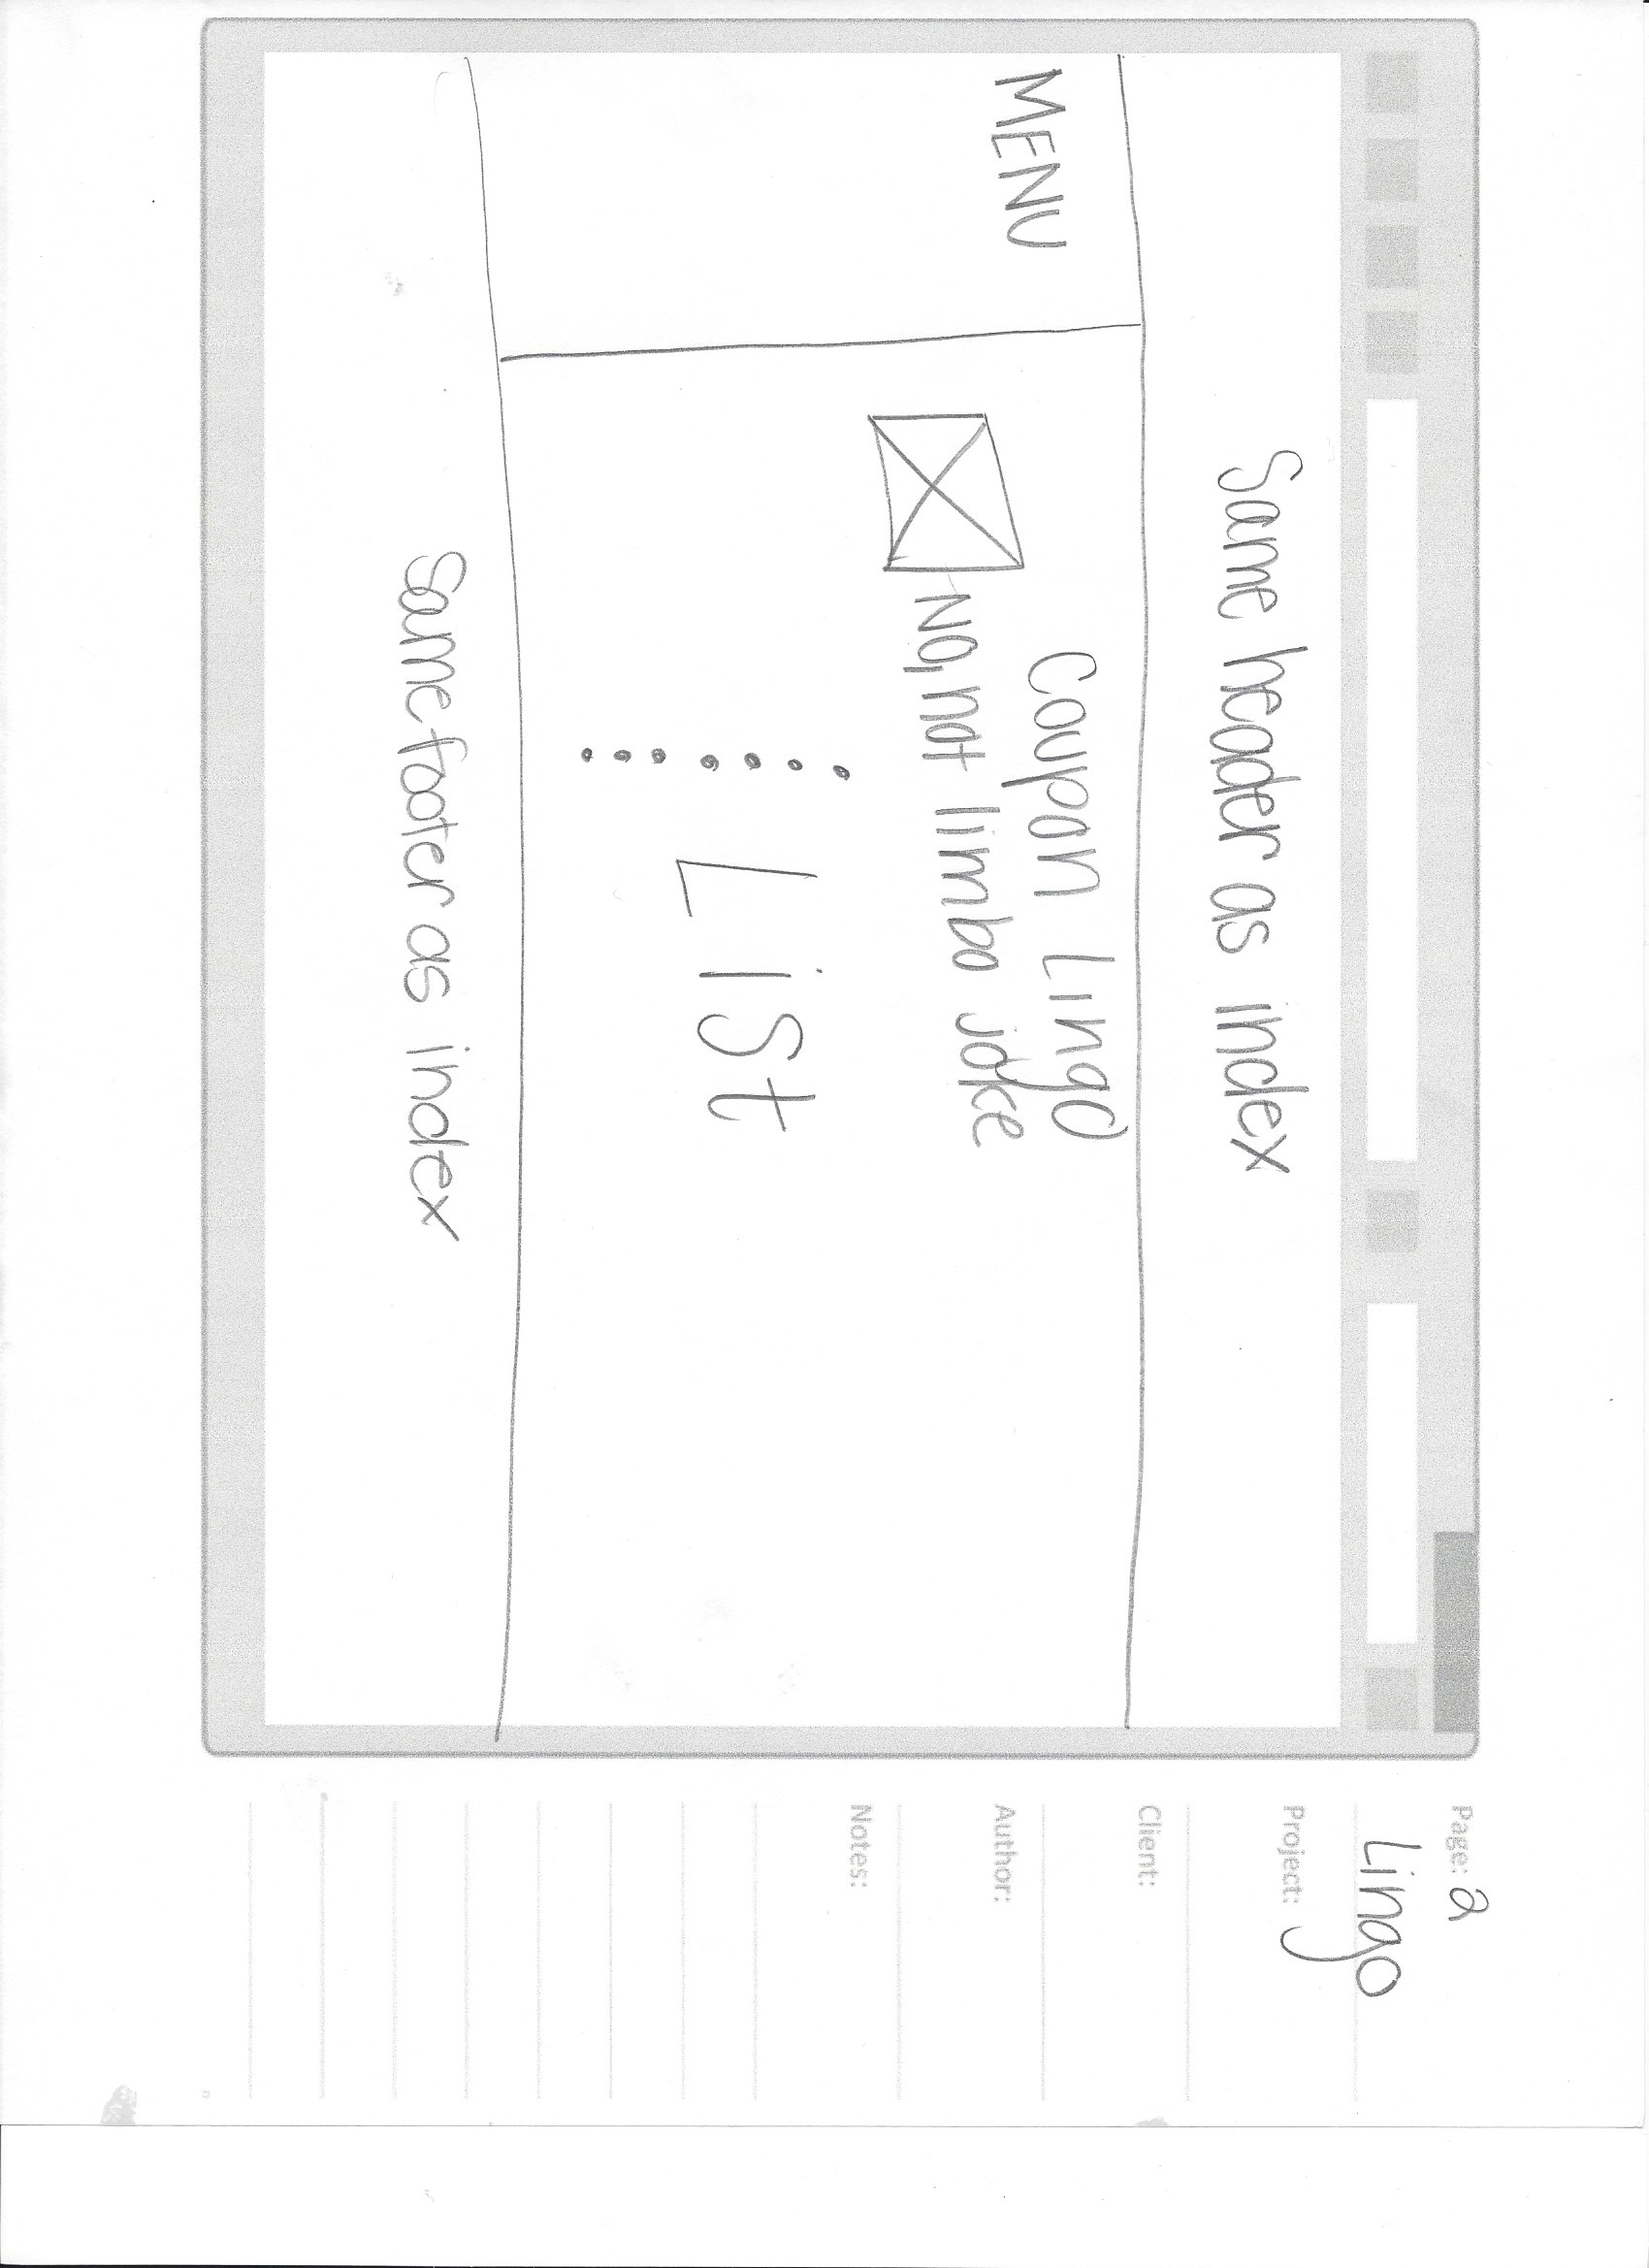 Same header as index
MENU
Coupon Lingo
No, not limbo joke
List
Same footer as index
Page: 2
Lingo
Project:
Client:
Author:
Notes: